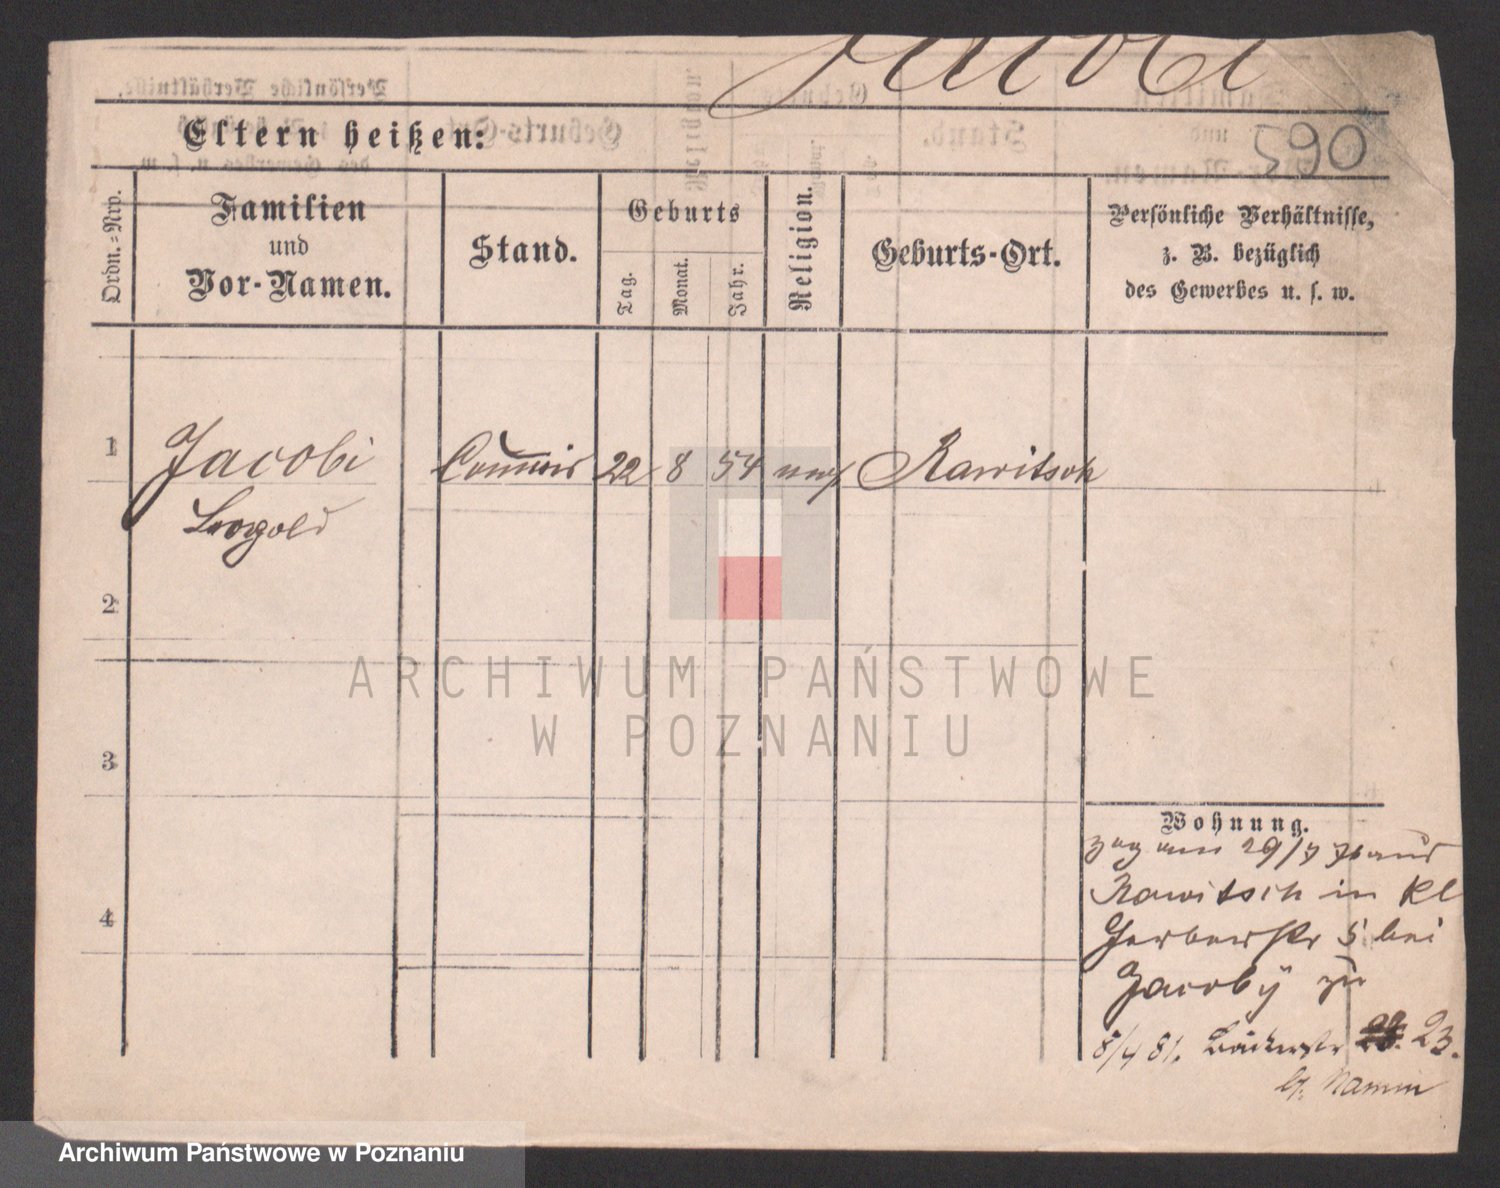 Jacobi
Eltern heißen:
590
Ordn.=Nro.
Familien
und
Vor-Namen.
Stand.
Geburts
Tag.
Monat.
Jahr.
Religion.
Geburts-Ort.
Persönliche Verhältnisse,
z. B. bezüglich
des Gewerbes u. s. w.
1
Jacobi Commis 22 8 54 Rawitsch
Leopold
2
3
4
Wohnung.
zog am 29/7 aus
Rawitsch in Kl
Gerberstr 5 bei
Jacoby zu
8/4 81. Bäckerstr 23.
ARCHIWUM PAŃSTWOWE
W POZNANIU
Archiwum Państwowe w Poznaniu